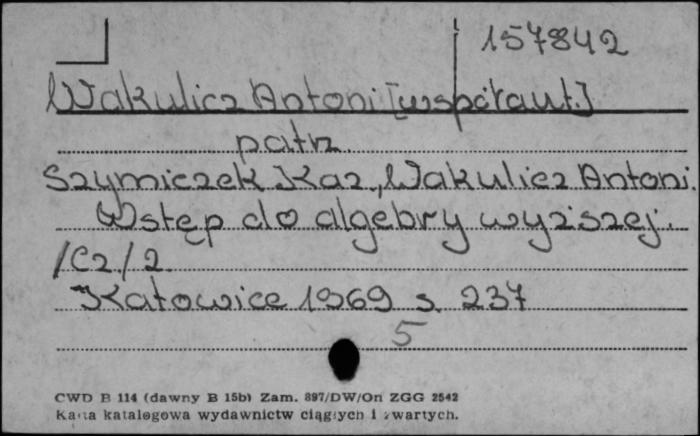 157842
Wakulicz Antoni [współaut.]
patrz
Szymiczek Kaz., Wakulicz Antoni
Wstęp do algebry wyższej.
/Cz/ 2
Katowice 1969 s. 237
5
CWD B 114 (dawny B 15b) Zam. 897/DW/On ZGG 2542
Karta katalogowa wydawnictw ciągłych i zwartych.